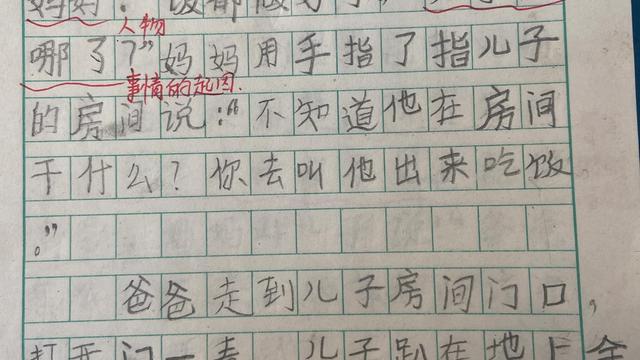 妈妈：“饭都
人物
哪了？”妈妈用手指了指儿子
事情的起因.
的房间说：“不知道他在房间
干什么？你去叫他出来吃饭
。”
爸爸走到儿子房间门口，
打开门一看 儿子趴在地上全